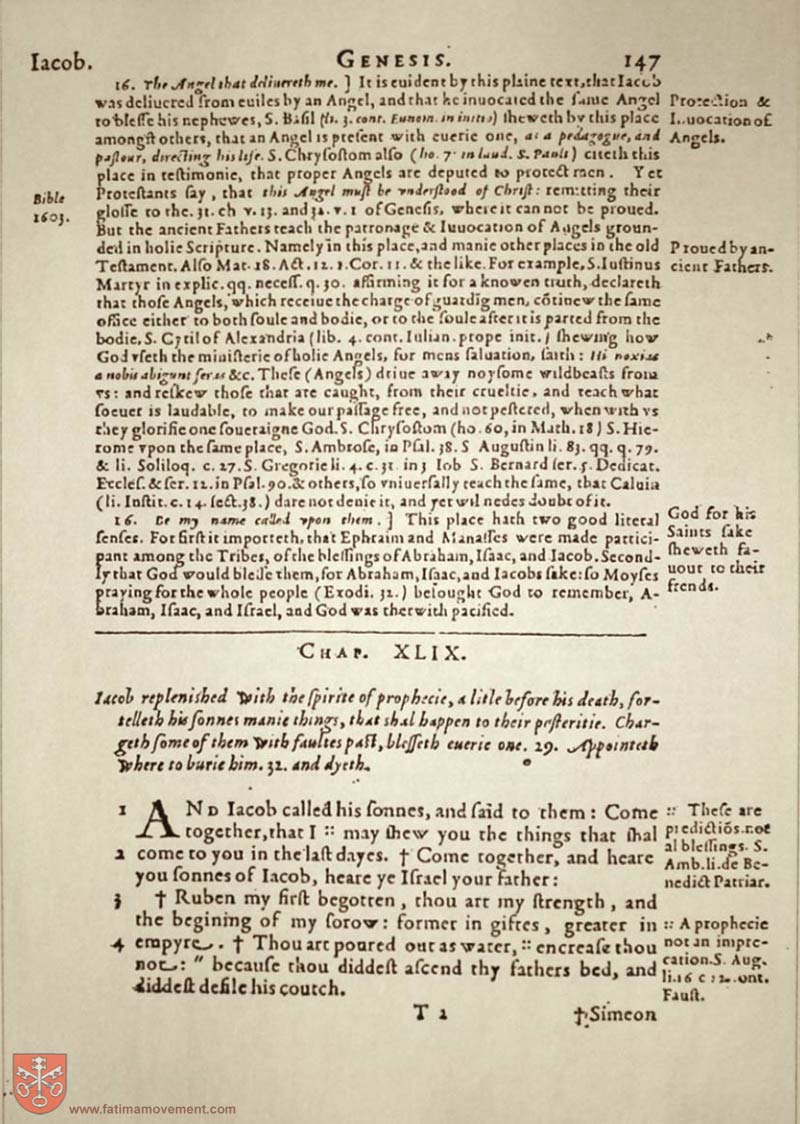 Iacob. GENESIS. 147
16. The Angel that deliuereth me. ] It is euident by this plaine text, that Iacob
was deliuered from euiles by an Angel, and that he inuocated the same Angel
to blesse his nephewes, S. Basil (li. 3. cont. Eunom. in initio) sheweth by this place
amongst others, that an Angel is present with euerie one, as a pedagogue, and
pastour, directing his life. S. Chrysostom also (ho. 7. in laud. S. Pauli) citeth this
place in testimonie, that proper Angels are deputed to protect men. Yet
Protestants say, that this Angel must be vnderstood of Christ: remitting their
glosse to the. 31. ch v. 13. and 32. v. 1 of Genesis, where it can not be proued.
But the ancient Fathers teach the patronage & Inuocation of Angels groun-
ded in holie Scripture. Namely in this place, and manie other places in the old
Testament. Also Mat. 18. Act. 12. 1. Cor. 11. & the like. For example, S. Iustinus
Martyr in explic. qq. necess. q. 30. affirming it for a knowen truth, declareth
that those Angels, which receiue the charge of guardīg men, cōtinew the same
office either to both soule and bodie, or to the soule after it is parted from the
bodie, S. Cyril of Alexandria (lib. 4. cont. Iulian. prope init.) shewing how
God vseth the ministerie of holie Angels, for mens saluation, saith: Hi noxias
a nobis abigunt feras &c. These (Angels) driue away noysome wildbeasts from
vs: and reskew those that are caught, from their crueltie, and teach what
soeuer is laudable, to make our passage free, and not pestered, when with vs
they glorifie one soueraigne God. S. Chrysostom (ho. 60, in Math. 18) S. Hie-
rome vpon the same place, S. Ambrose, in Psal. 38. S Augustin li. 83. qq. q. 79.
& li. Soliloq. c. 27. S. Gregorie li. 4. c. 31 in 3 Iob S. Bernard ser. 5. Dedicat.
Eccles. & ser. 12. in Psal. 90. & others, so vniuersally teach the same, that Caluin
(li. Instit. c. 14. sect. 38.) dare not denie it, and yet wil nedes doubt of it.
16. Be my name called vpon them. ] This place hath two good literal
senses. For first it importeth, that Ephraim and Manasses were made partici-
pant among the Tribes, of the blessings of Abraham, Isaac, and Iacob. Second-
ly that God would blesse them, for Abraham, Isaac, and Iacobs sake: so Moyses
praying for the whole people (Exodi. 32.) besought God to remember, A-
braham, Isaac, and Israel, and God was therwith pacified.
Bible
1603.
Protection &
Inuocation of
Angels.
Proued by an-
cient Fathers.
God for his
Saints sake
sheweth fa-
uour to their
frends.
CHAP. XLIX.
Iacob replenished with the spirite of prophecie, a litle before his death, for-
telleth his sonnes manie things, that shal happen to their posteritie. Char-
geth some of them with faultes past, blesseth euerie one. 29. Appointeth
where to burie him. 32. and dyeth.
1 AND Iacob called his sonnes, and said to them: Come
together, that I :: may shew you the things that shal
2 come to you in the last dayes. † Come together, and heare
you sonnes of Iacob, heare ye Israel your father:
3 † Ruben my first begotten, thou art my strength, and
the begining of my sorow: former in giftes, greater in
4 empyre. † Thou art poured out as water, :: encrease thou
not: " because thou diddest ascend thy fathers bed, and
diddest defile his couch.
:: These are
predictiōs. not
al blessings. S.
Amb. li. de Be-
nedict Patriar.
:: A prophecie
not an impre-
cation. S. Aug.
li. 16 c. 
Faust.
T 2 † Simeon
www.fatimamovement.com